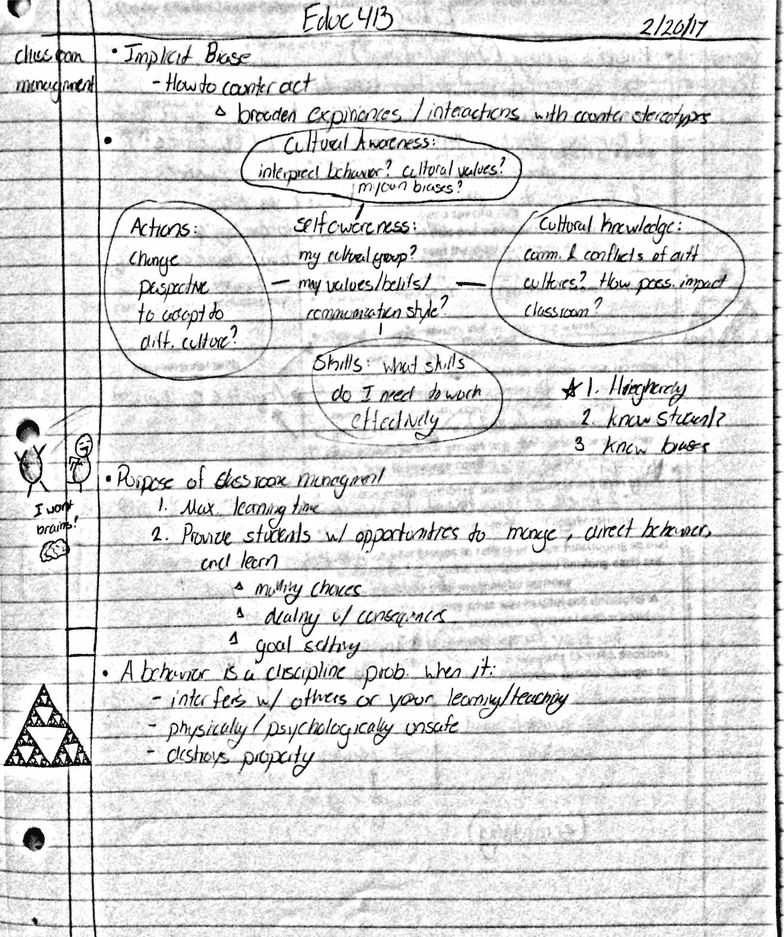 Educ 413
2/20/17
class room
managment
• Implicit Biase
- How to counter act
△ broaden expiriances / interactions with counter sterotypes
•
Cultural Awareness:
interpret behavior? cultural values?
my own biases?
Actions:
change
perspective
to adapt to
diff. culture?
self awareness:
my cultural group?
my values/beliefs/
communication style?
Cultural Knowledge:
comm. & conflicts of diff
cultures? How poss. impact
classroom?
Skills: what skills
do I need to work
effectively
☆ 1.
2. know students
3 know biases
I want
brains!
• Purpose of classroom managment
1. Max. learning time
2. Provide students w/ opportunities to mange, direct behavior,
and learn
△ making choices
△ dealing w/ consequences
△ goal setting
• A behavior is a discipline prob. when it:
- interfers w/ others or your learning/teaching
- physically / psychologically unsafe
- destroys property